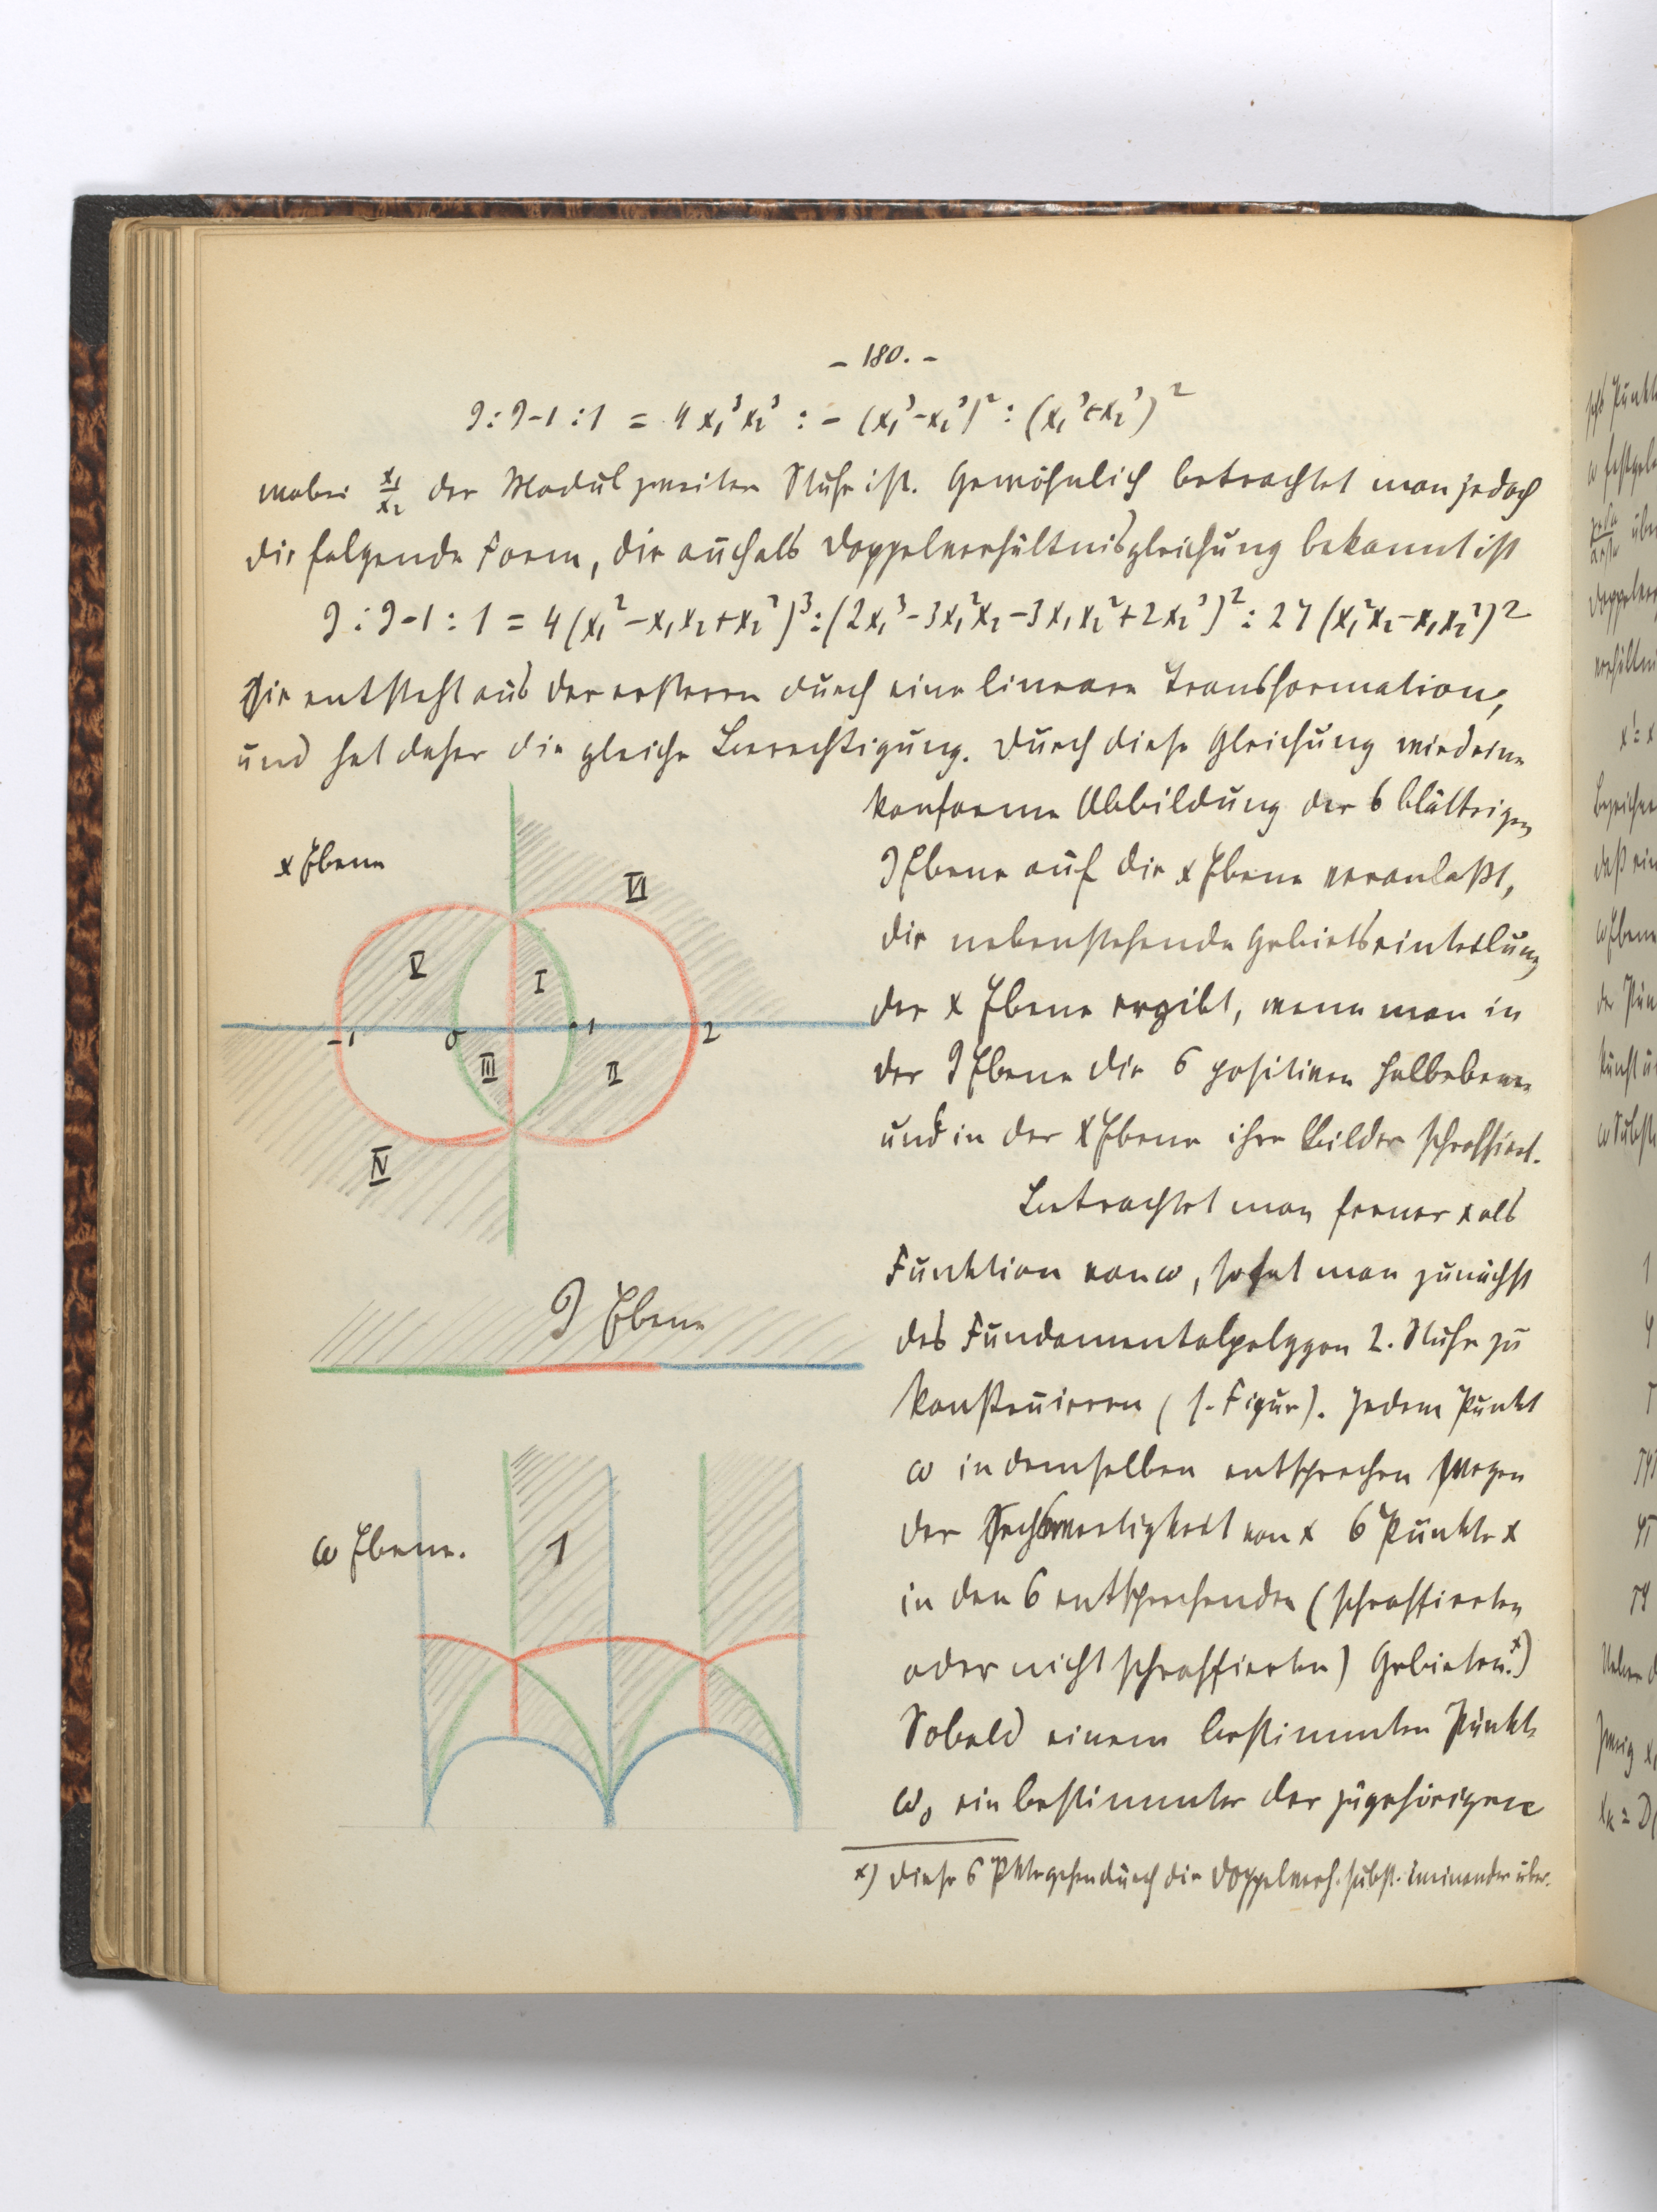 – 180. –
J : J-1 : 1 = 4 x₁³x₂³ : – (x₁³–x₂³)² : (x₁³+x₂³)²
wobei x₁/x₂ der Modul zweiter Stufe ist. Gewöhnlich betrachtet man jedoch
die folgende Form, die auch als Doppelverhältnisgleichung bekannt ist
J : J-1 : 1 = 4 (x₁² – x₁x₂ + x₂²)³ : (2x₁³ – 3x₁²x₂ – 3x₁x₂² + 2x₂³)² : 27 (x₁²x₂ – x₁x₂²)²
Sie entsteht aus der ersteren durch eine lineare Transformation,
und hat daher die gleiche Berechtigung. Durch diese Gleichung wird eine
konforme Abbildung der 6 blättrigen
J Ebene auf die x Ebene veranlaßt,
die nebenstehende Gebietseinteilung
der x Ebene ergibt, wenn man in
der J Ebene die 6 positiven Halbebenen
und in der x Ebene ihre Bilder schraffiert.
Betrachtet man ferner x als
Funktion von ω, so hat man zunächst
das Fundamentalpolygon 2. Stufe zu
konstruieren (s. Figur). Jedem Punkt
ω in demselben entsprechen wegen
der Sechswertigkeit von x 6 Punkte x
in den 6 entsprechenden (schraffierten
oder nicht schraffierten) Gebieten.ˣ)
Sobald einem bestimmten Punkte
ω₀ ein bestimmter der zugehörigen
x) Diese 6 Pkte gehen durch die Doppelverh. subst. ineinander über.
x Ebene
VI
V
I
-1
0
1
2
III
II
IV
J Ebene
ω Ebene.
1